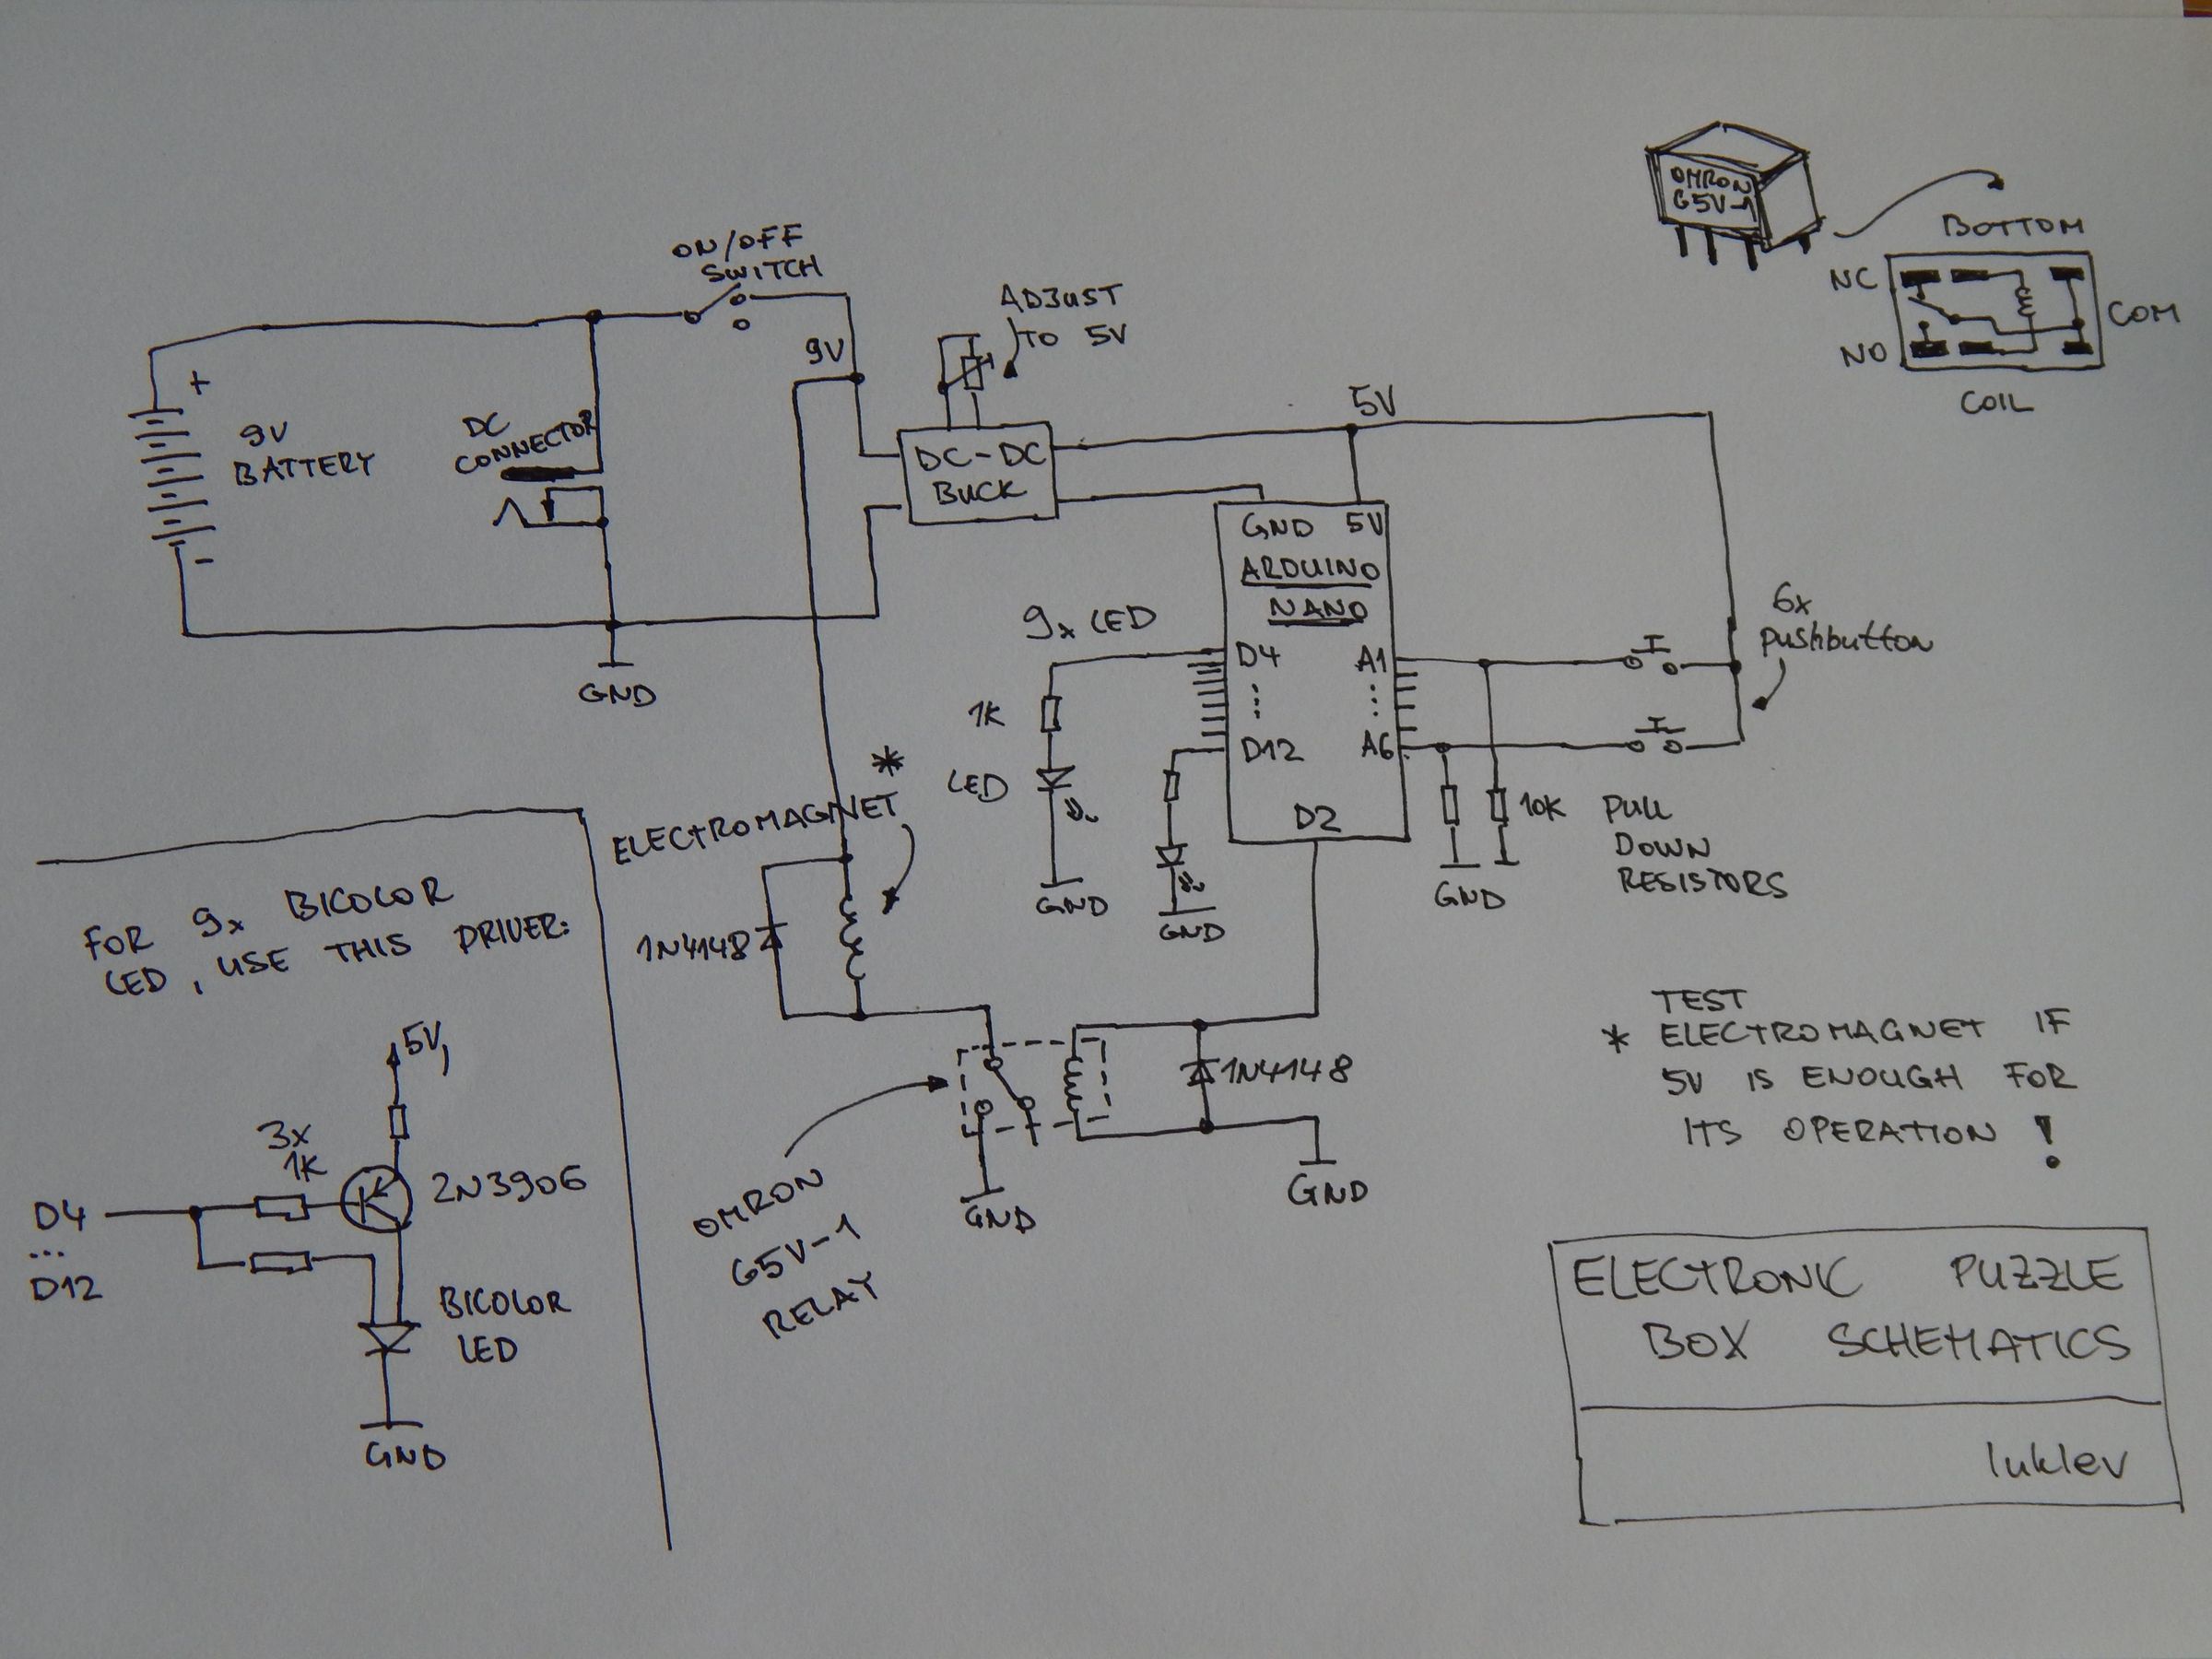 ON/OFF
SWITCH
9V
ADJUST
TO 5V
OMRON
G5V-1
BOTTOM
NC
NO
COM
COIL
+
9V
BATTERY
-
DC
CONNECTOR
GND
DC-DC
BUCK
5V
GND 5V
ARDUINO
NANO
D4 A1
D12 A6
D2
9x LED
1K
LED
GND
GND
6x
pushbutton
10K PULL
DOWN
RESISTORS
GND
*
ELECTROMAGNET
1N4148
1N4148
GND
GND
OMRON
G5V-1
RELAY
TEST
* ELECTROMAGNET IF
5V IS ENOUGH FOR
ITS OPERATION !
FOR 9x BICOLOR
LED, USE THIS DRIVER:
5V
3x
1K
2N3906
D4
...
D12
BICOLOR
LED
GND
ELECTRONIC PUZZLE
BOX SCHEMATICS
luklev